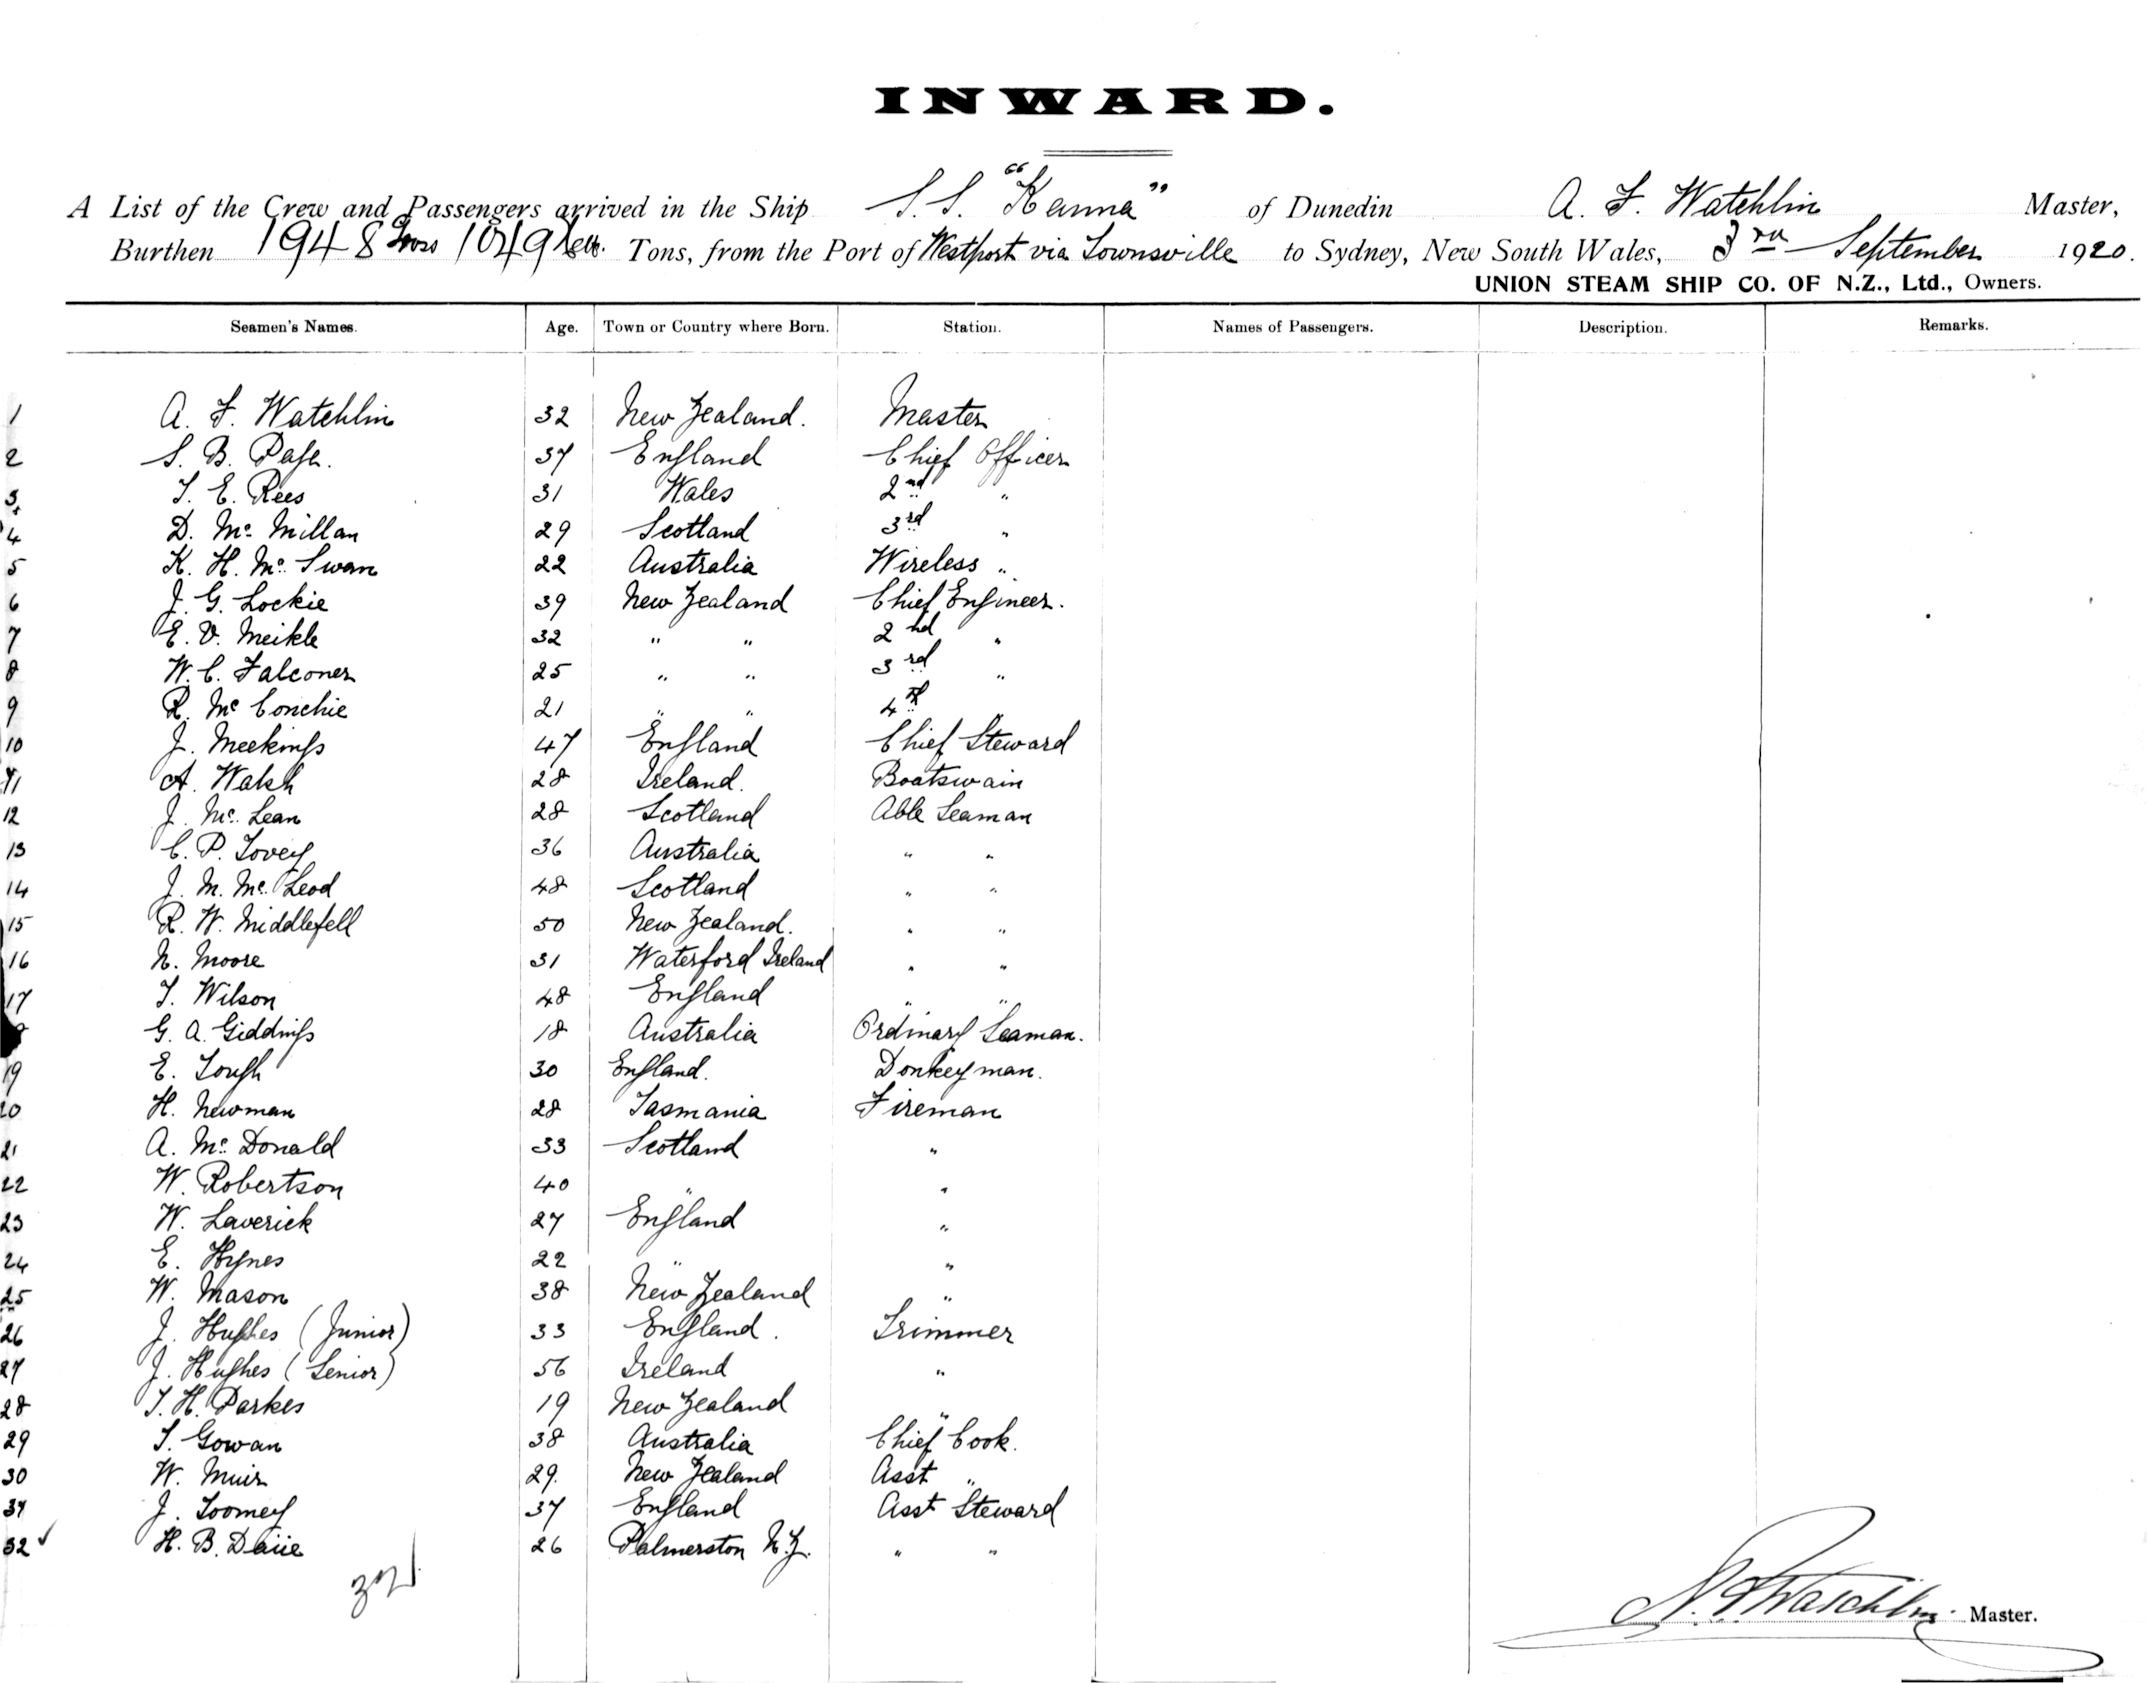 INWARD.
A List of the Crew and Passengers arrived in the Ship S.S. "Kanna" of Dunedin A. F. Watchlin Master,
Burthen 1948 Gross 1049 Nett. Tons, from the Port of Westport via Townsville to Sydney, New South Wales, 3rd September 1920.
UNION STEAM SHIP CO. OF N.Z., Ltd., Owners.
Seamen's Names. Age. Town or Country where Born. Station. Names of Passengers. Description. Remarks.
1 A. F. Watchlin 32 New Zealand. Master
2 S. B. Page. 37 England Chief Officer
3 T. E. Rees 31 Wales 2nd "
4 D. Mc Millan 29 Scotland 3rd "
5 K. H. Mc Swan 22 Australia Wireless "
6 J. G. Lockie 39 New Zealand Chief Engineer.
7 E. V. Meikle 32 " " 2nd "
8 W. C. Falconer 25 " " 3rd "
9 R. Mc Conchie 21 " " 4th "
10 J. Meekings 47 England Chief Steward
11 A. Walsh 28 Ireland. Boatswain
12 J. Mc Lean 28 Scotland Able Seaman
13 C. P. Tovey 36 Australia " "
14 J. M. Mc Leod 48 Scotland " "
15 R. W. Middlefell 50 New Zealand. " "
16 N. Moore 31 Waterford Ireland " "
17 T. Wilson 48 England " "
G. A. Giddings 18 Australia Ordinary Seaman.
19 E. Tough 30 England. Donkeyman.
20 H. Newman 28 Tasmania Fireman
21 A. Mc Donald 33 Scotland "
22 W. Robertson 40 " "
23 W. Laverick 27 England "
24 E. Hynes 22 " "
25 W. Mason 38 New Zealand "
26 J. Hughes (Junior) 33 England. Trimmer
27 J. Hughes (Senior) 56 Ireland "
28 T. H. Parkes 19 New Zealand "
29 T. Gowan 38 Australia Chief Cook.
30 W. Muir 29. New Zealand Asst "
31 J. Toomey 37 England Asst Steward
32 ✓ H. B. 26 Palmerston N.Z. " "
32
A. F. Watchlin. Master.